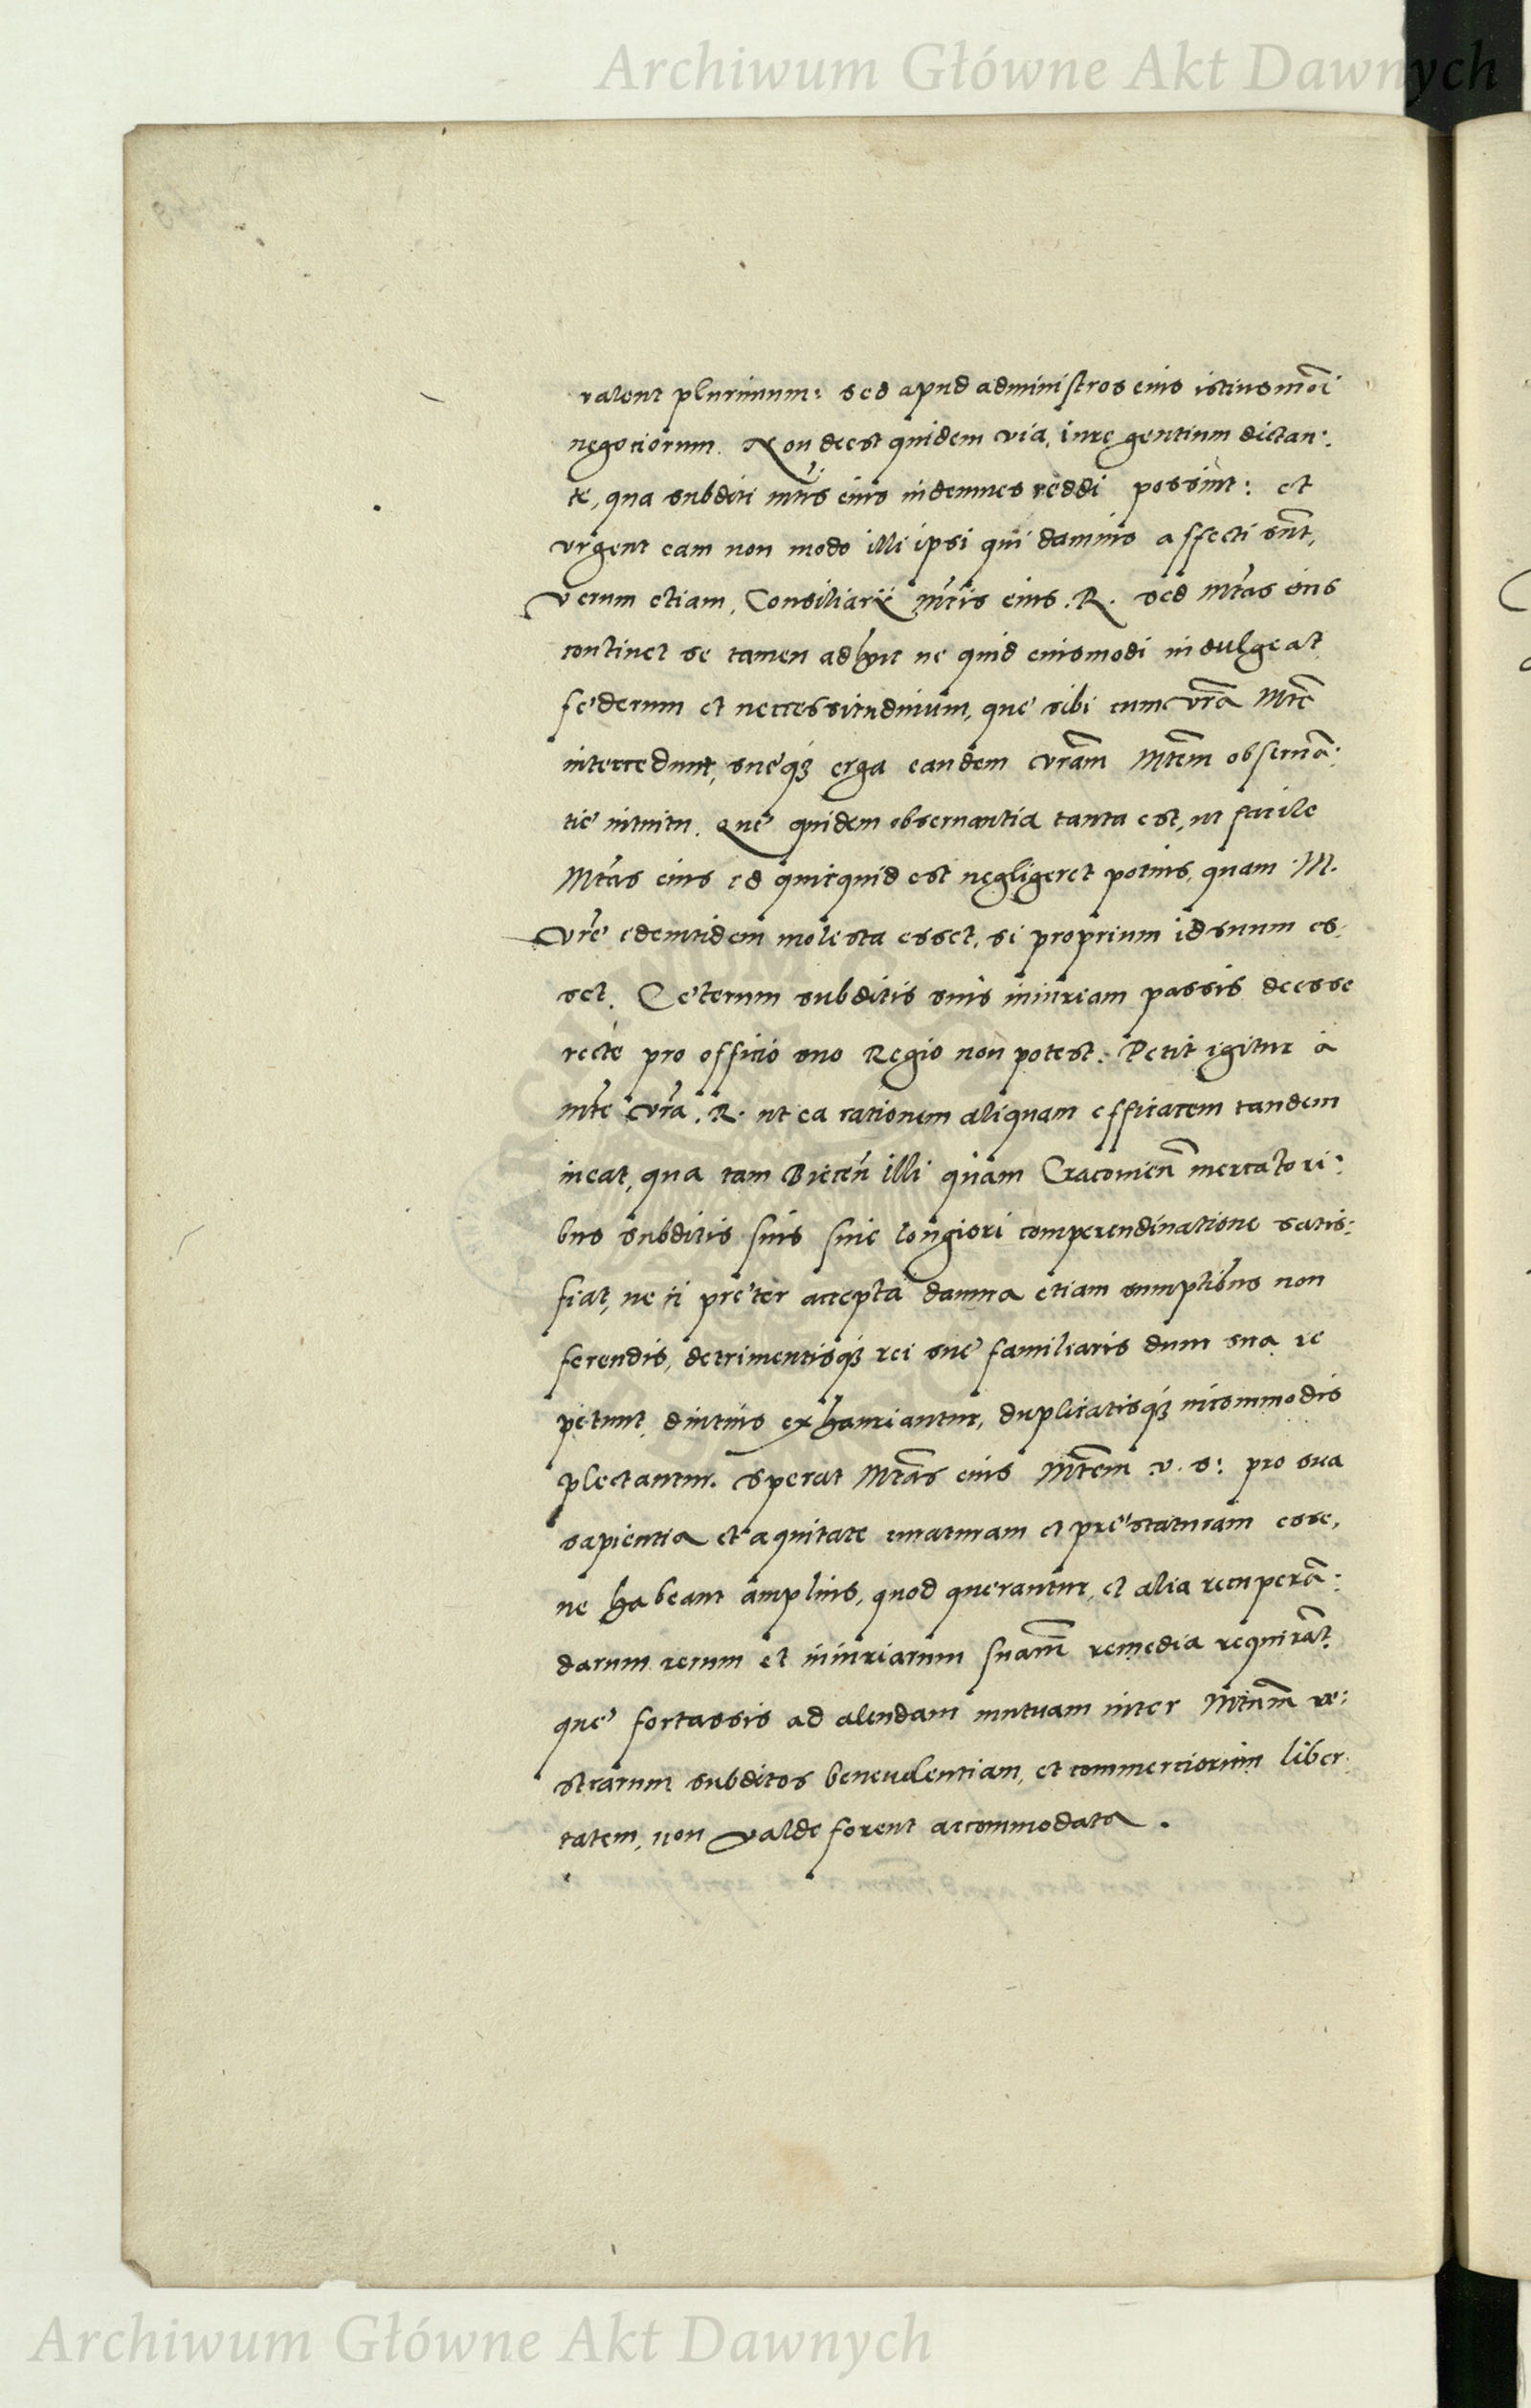 Archiwum Główne Akt Dawnych
valent plurimum: sed apud administros eius istiusmõi
negociorum. Non deest quidem via, iure gentium dictan:
te, qua subditi mtis eius indemnes reddi possint: et
vrgent eam non modo illi ipsi qui damnis affecti sũt,
verum etiam, Consiliarij mtis eius .R. sed mtas eius
continet se tamen adhuc ne quid eiusmodi indulgeat
federum et neccessitudinum, que sibi cum vrã Mte
intercedunt, sueq3 erga eandem vrãm Mtem obseruã:
tie intuitu. Que quidem obseruantia tanta est, ut facile
Mtas eius id quicquid est negligeret potius, quam .M.
vre identidem molesta esset, si proprium id suum es:
set. Ceterum subditis suis iniuriam passis deesse
recte pro officio suo Regio non potest. Petit igitur à
mte vra .R. ut ea rationem aliquam efficacem tandem
ineat, qua tam Biecen̄ illi quam Cracouien̄ mercatori:
bus subditis suis sine longiori comperendinatione satis:
fiat, ne ii preter accepta damna etiam sumptibus non
ferendis, detrimentisq3 rei sue familiaris dum sua re
petunt, diutius exhauriantur, duplicatisq3 incommodis
plectantur. Sperat Mtas eius Mtem .v. s: pro sua
sapientia et aquitate curaturam et prestaturam esse,
ne habeant amplius, quod querantur, et alia recuperã:
darum rerum et iniuriarum suarm̃ remedia requirãt,
que fortassis ad alendam mutuam inter Mtum̃ ve:
strarum subditos beneuolentiam, et commerciorum liber:
tatem, non valde forent accommodata.
Archiwum Główne Akt Dawnych